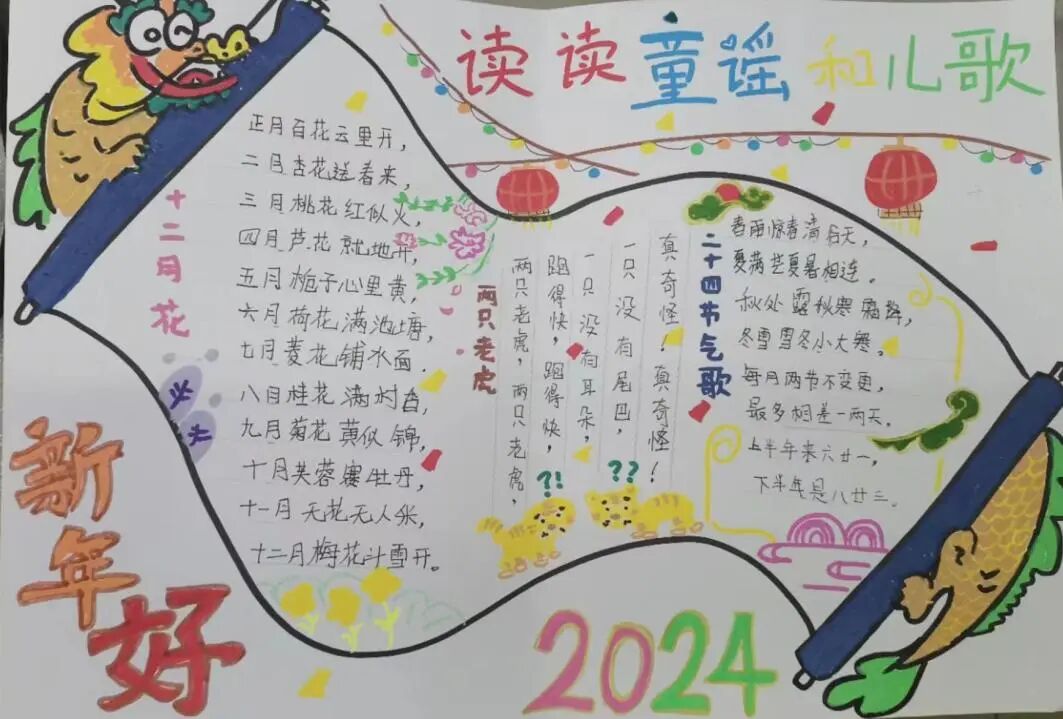 读读童谣和儿歌
十二月花
正月百花云里开，
二月杏花送春来，
三月桃花红似火，
四月芦花就地开，
五月栀子心里黄，
六月荷花满池塘，
七月菱花铺水面．
八月桂花满村香，
九月菊花黄似锦，
十月芙蓉赛牡丹，
十一月无花无人采，
十二月梅花斗雪开。
两只老虎
两只老虎，两只老虎，
跑得快，跑得快，
一只没有耳朵，
一只没有尾巴，
真奇怪！真奇怪！
?!
??
二十四节气歌
春雨惊春清谷天，
夏满芒夏暑相连。
秋处露秋寒霜降，
冬雪雪冬小大寒。
每月两节不变更，
最多相差一两天。
上半年来六廿一，
下半年是八廿三。
新年好
2024